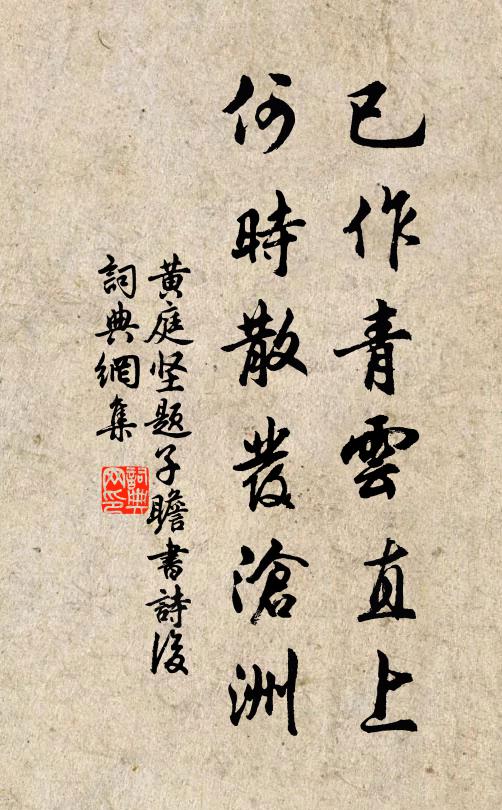 已作青雲直上
何時散發滄洲
黄庭坚題子瞻書詩後
詞典網集
詞典网印